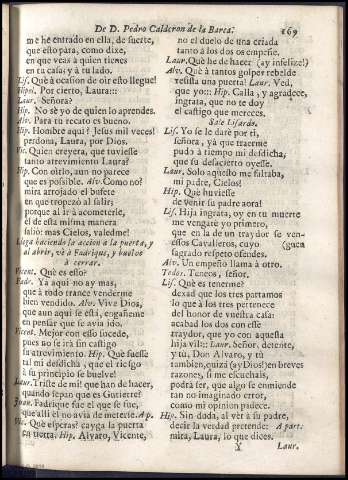 De D. Pedro Calderon de la Barca.
169
me hé entrado en ella, de suerte,
que esto para, como dixe,
en que veas à quien tienes
en tu casa; y à tu lado.
Lis. Què à ocasion de oir esto llegue!
Hipol. Por cierto, Laura:::
Laur. Señora?
Hip. No sè yo de quien lo aprendes.
Alv. Para tu recato es bueno.
Hip. Hombre aqui? Jesus mil veces!
perdona, Laura, por Dios.
Vic. Quien creyera, que tuviesse
tanto atrevimiento Laura?
Hip. Con oirlo, aun no parece
que es possible. Alv. Como no?
mira arrojado el bufete
en que tropezò al salir;
porque al ir à acometerle,
él de esta misma manera
saliò: mas Cielos, valedme!
Llega haciendo la accion a la puerta, y
al abrir, vè à Fadrique, y buelve
à cerrar.
Vicent. Què es esto?
Fadr. Ya aqui no ay mas,
que à todo trance venderme
bien vendido. Alv. Vive Dios,
que aun aqui se està, engañeme
en pensar que se avia ido.
Vicent. Mejor con esso sucede,
pues no se irà sin castigo
su atrevimiento. Hip. Què suesse
tal mi desdicha, que el riesgo
à su principio se buelve!
Laur. Triste de mi! que han de hacer,
quando sepan que es Gutierre?
Juan. Fadrique fue el que se fue,
que alli el no avia de meterse. Ap.
Vic. Què esperas? cayga la puerta
en tierra. Hip. Alvaro, Vicente,
no el duelo de una criada
tanto à los dos os empeñe.
Laur. Què he de hacer (ay infelize!)
Alv. Què à tantos golpes rebelde
resista una puerta! Laur. Ved,
que yo::: Hip. Calla, y agradece,
ingrata, que no te doy
el castigo que mereces.
Sale Lisardo.
Lis. Yo se le darè por ti,
señora, yà que traerme
pudo à tiempo mi desdicha,
que su desacierto oyesse.
Laur. Solo aquesto me faltaba,
mi padre, Cielos!
Hip. Què huviesse
de venir su padre aora!
Lis. Hija ingrata, oy en tu muerte
me vengarè yo primero,
que en la de un traydor se vengen
essos Cavalleros, cuyo
sagrado respeto ofendes.
Alv. Un empeño llama à otro.
Todos. Teneos, señor.
Lis. Què es tenerme?
dexad que los tres partamos
lo que à los tres pertenece
del honor de vuestra casa:
acabad los dos con esse
traydor, que yo con aquesta
hija vil::: Laur. Señor, detente,
y tù, Don Alvaro, y tù
tambien, quizà (ay Dios!) en breves
razones, si me escuchais,
podrà ser, que algo se enmiende
tan no imaginado error,
como mi opinion padece.
Hip. Sin duda, al vèr à su padre,
decir la verdad pretende: A part.
mira, Laura, lo que dices.
Y
Laur.